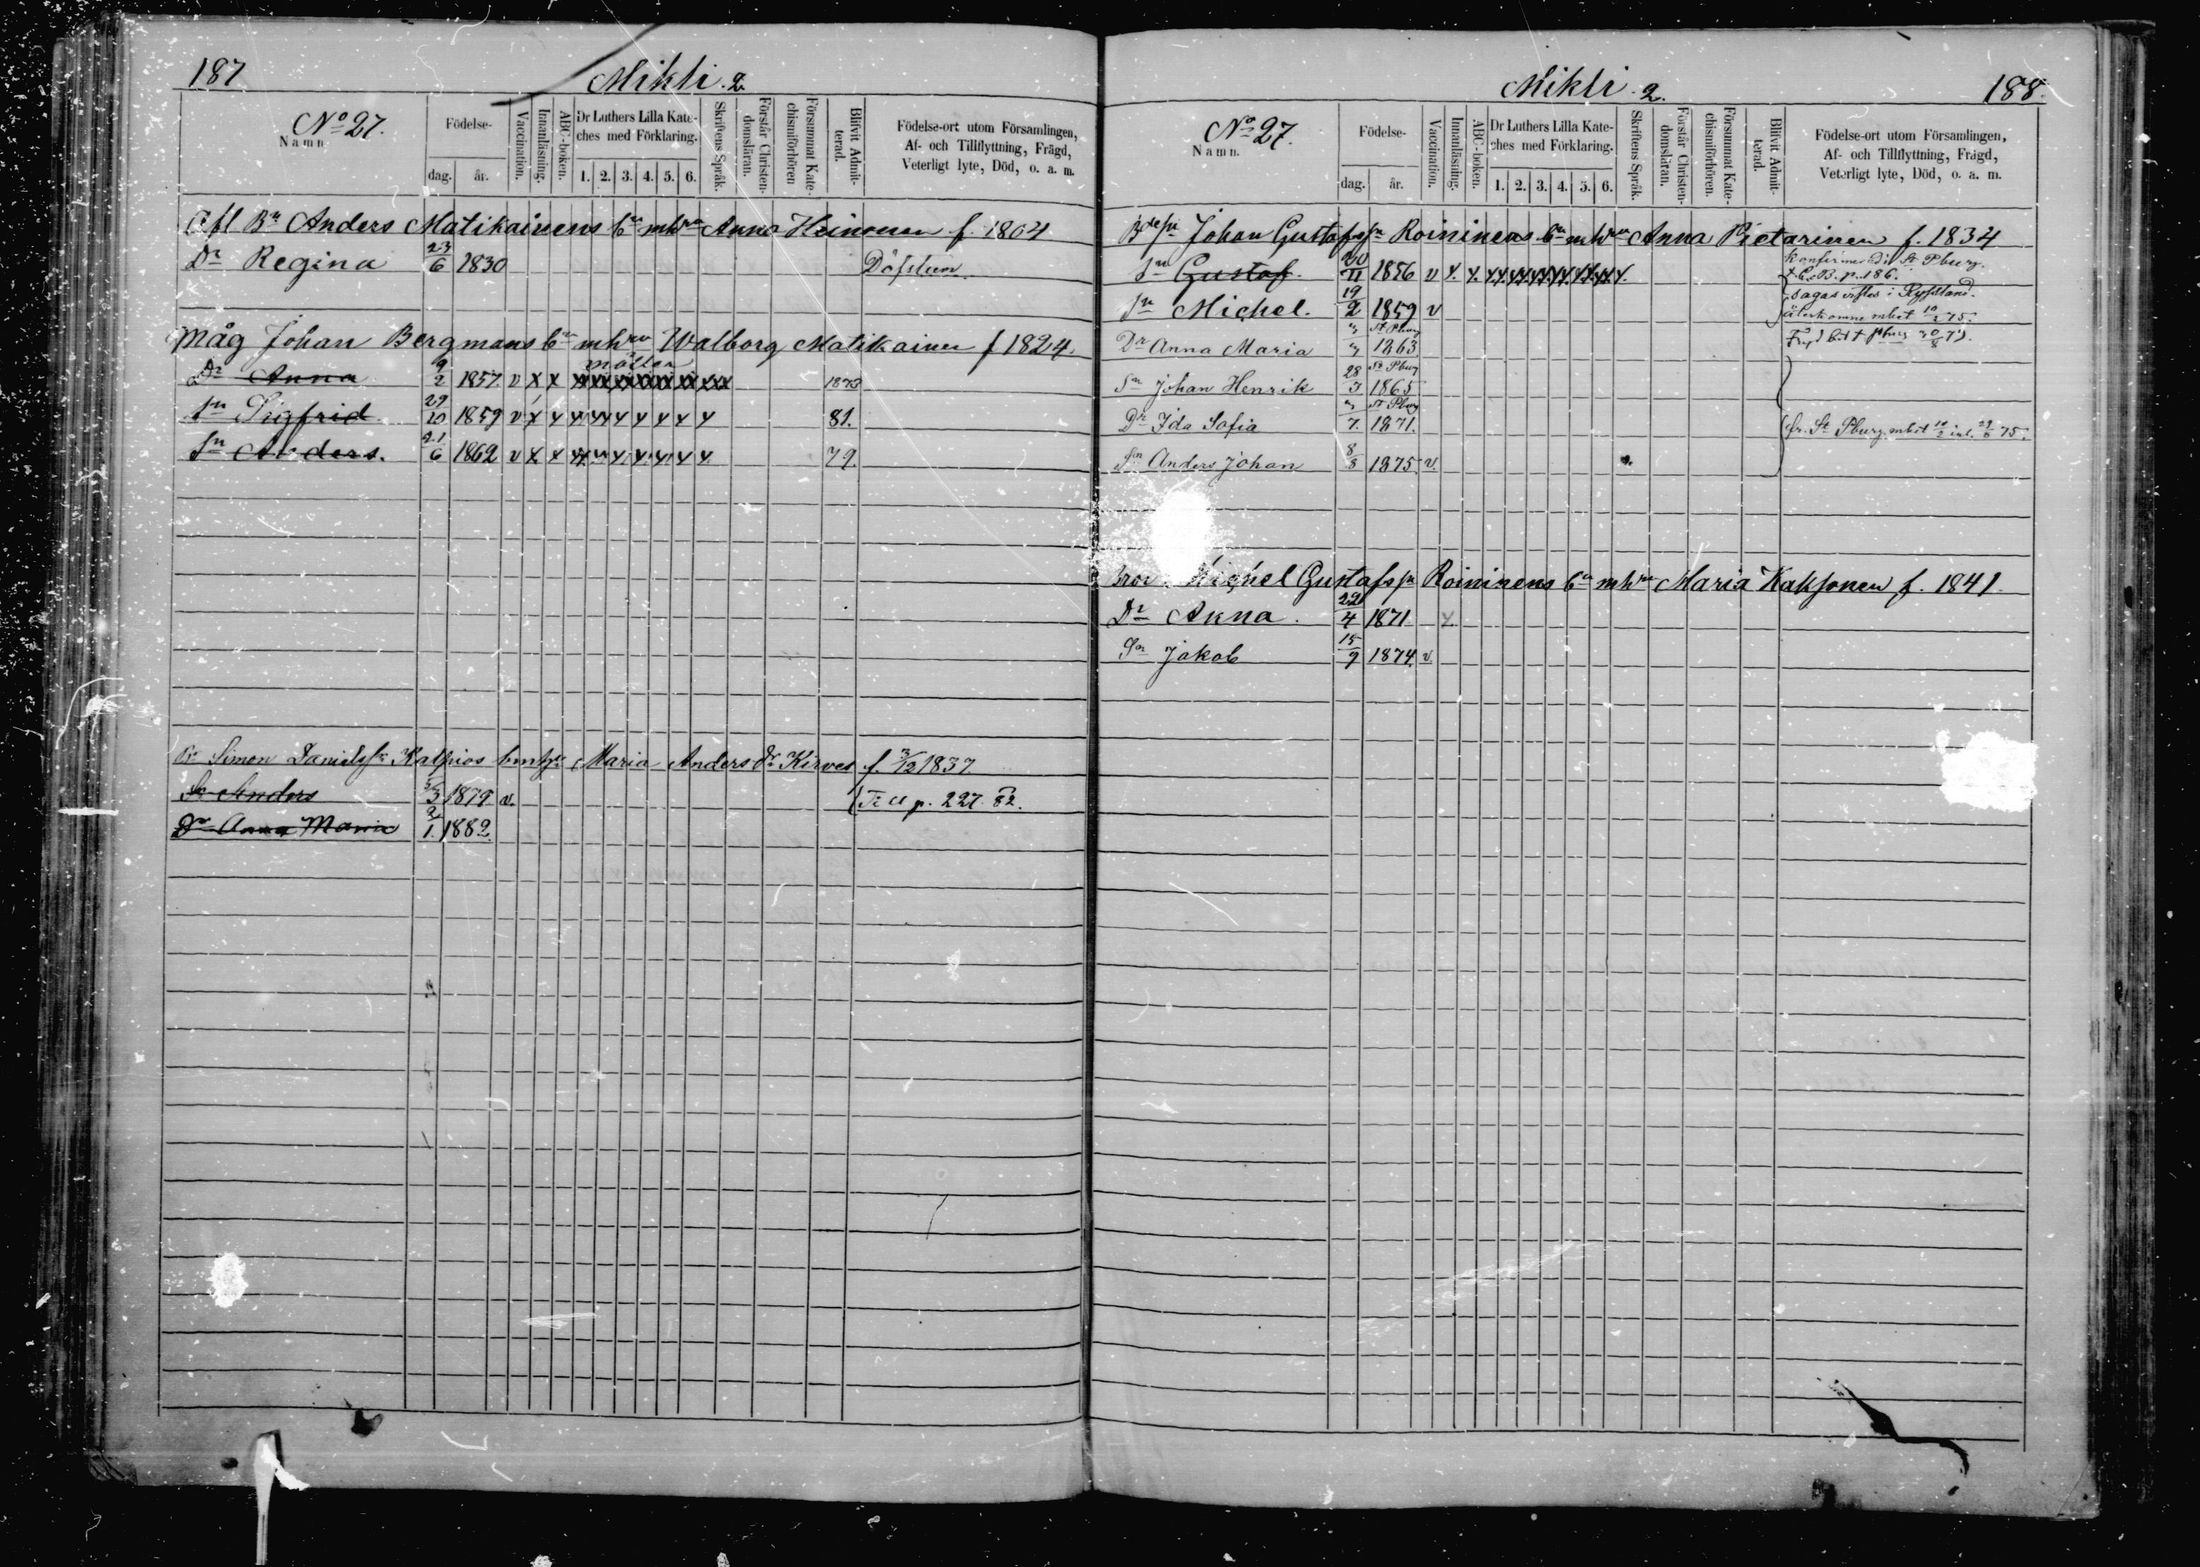 187
Mikli. 2.
No 27.
Namn
Födelse-
dag. år.
Vaccination.
Innanläsning.
ABC-boken.
Dr Luthers Lilla Kate-
ches med Förklaring.
1. 2. 3. 4. 5. 6.
Skriftens Språk.
Förstår Christen-
domsläran.
Försummat Kate-
chismiförhören
Blifvit Admit-
terad.
Födelse-ort utom Församlingen,
Af- och Tillflyttning, Frägd,
Veterligt lyte, Död, o. a. m.
Afl Bn Anders Matikainens bn mhru Anna Heinonen f. 1804
Dr Regina 23/6 1830 Döfstum
Måg Johan Bergmans bn mhru Walborg Matikainen f 1824.
Dr Anna 9/2 1857 v x x 1873
Sn Sigfrid 29/10 1859 v x x x x x x x x x 81.
Sn Anders. 21/6 1862 v x x x x x x x x x 79.
Simon Danielss Kalpios bmhu Maria Anders dr Kirves f. 3/12 1837
Sn Anders 1879 v. Till p. 227. 82.
Dr Anna Maria 2/1. 1882
Mikli 2.
188.
No 27.
Namn.
Födelse-
dag. år.
Vaccination.
Innanläsning.
ABC-boken.
Dr Luthers Lilla Kate-
ches med Förklaring.
1. 2. 3. 4. 5. 6.
Skriftens Språk.
Förstår Christen-
domsläran.
Försummat Kate-
chismiförhören.
Blifvit Admit-
terad.
Födelse-ort utom Församlingen,
Af- och Tillflyttning, Frägd,
Veterligt lyte, Död, o. a. m.
Johan Gustafssn Roininens bn mhru Anna Pietarinen f. 1834
konfirmerad i St Pburg.
Sn Gustaf. 20/11 1856 v x. x. p. 186.
Sn Michel. 19/2 1859 v
St Pburg
Dr Anna Maria 1863
St Pburg
Sn Johan Henrik 28/3 1865
St Pburg
Dr Ida Sofia 7. 1871. fr. St Pburg 75.
Sn Anders Johan 8/8 1875 v.
Michel Gustafssn Roininens bn mhru Maria Kaksonen f. 1841.
Dr Anna. 22/4 1871 x
Sn Jakob 15/9 1874. v.